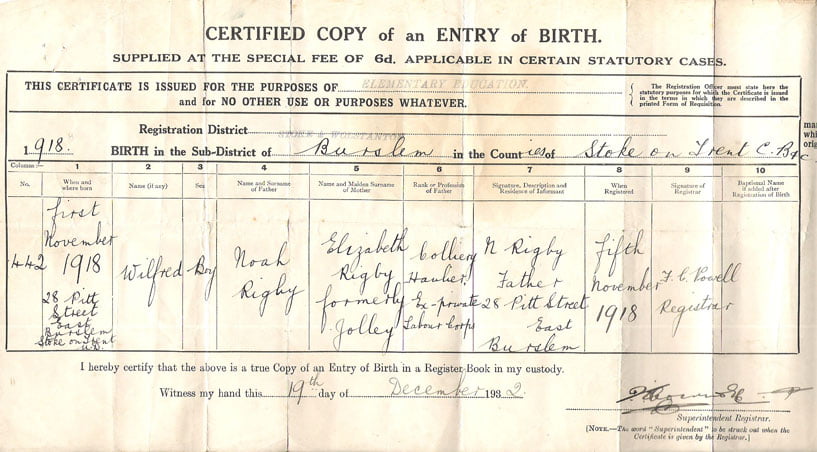 CERTIFIED COPY of an ENTRY of BIRTH.
SUPPLIED AT THE SPECIAL FEE OF 6d. APPLICABLE IN CERTAIN STATUTORY CASES.
THIS CERTIFICATE IS ISSUED FOR THE PURPOSES OF ELEMENTARY EDUCATION.
and for NO OTHER USE OR PURPOSES WHATEVER.
The Registration Officer must state here the
statutory purposes for which the Certificate is issued
in the terms in which they are described in the
printed Form of Requisition.
Registration District STOKE & WOLSTANTON
1918. BIRTH in the Sub-District of Burslem in the Counties of Stoke on Trent C.B. &c
Columns:— 1 2 3 4 5 6 7 8 9 10
No.
When and
where born
Name (if any)
Sex
Name and Surname
of Father
Name and Maiden Surname
of Mother
Rank or Profession
of Father
Signature, Description and
Residence of Informant
When
Registered
Signature of
Registrar
Baptismal Name
if added after
Registration of Birth
442
First
November
1918
28 Pitt
Street
East
Burslem
Stoke on Trent
U.D.
Wilfred
Boy
Noah
Rigby
Elizabeth
Rigby
formerly
Jolley
Colliery
Haulier
Ex-private
Labour Corps
N Rigby
Father
28 Pitt Street
East
Burslem
Fifth
November
1918
F. C. Powell
Registrar
I hereby certify that the above is a true Copy of an Entry of Birth in a Register Book in my custody.
Witness my hand this 19th day of December 1932.
Superintendent Registrar.
[NOTE.—The word "Superintendent" is to be struck out when the
Certificate is given by the Registrar.]